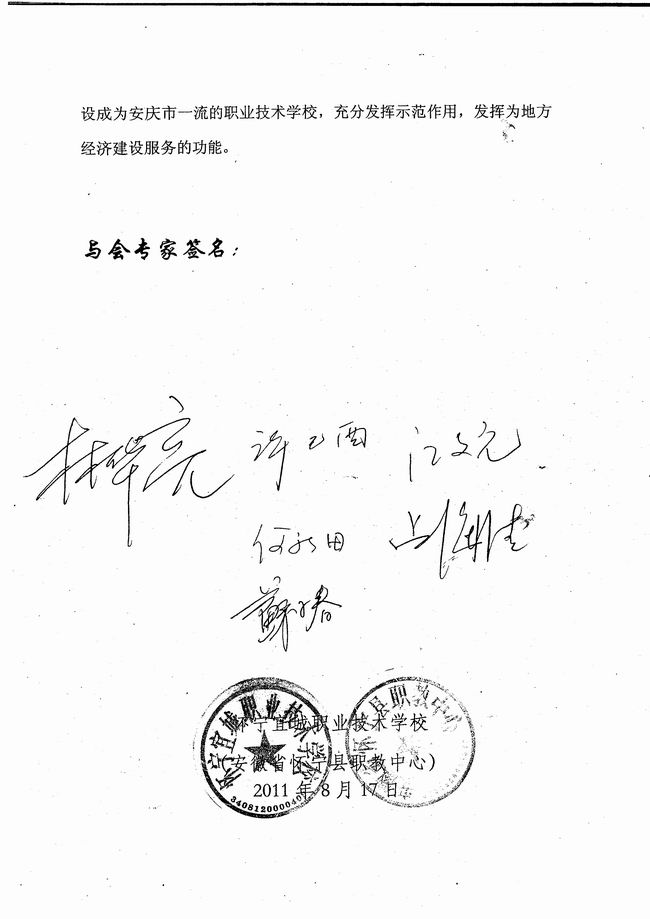 设成为安庆市一流的职业技术学校，充分发挥示范作用，发挥为地方
经济建设服务的功能。
与会专家签名：
许己酉 江文元
怀宁宜城职业技术学校
（安徽省怀宁县职教中心）
2011 年 8 月 17 日
怀宁宜城职业技术学校
县职教中心